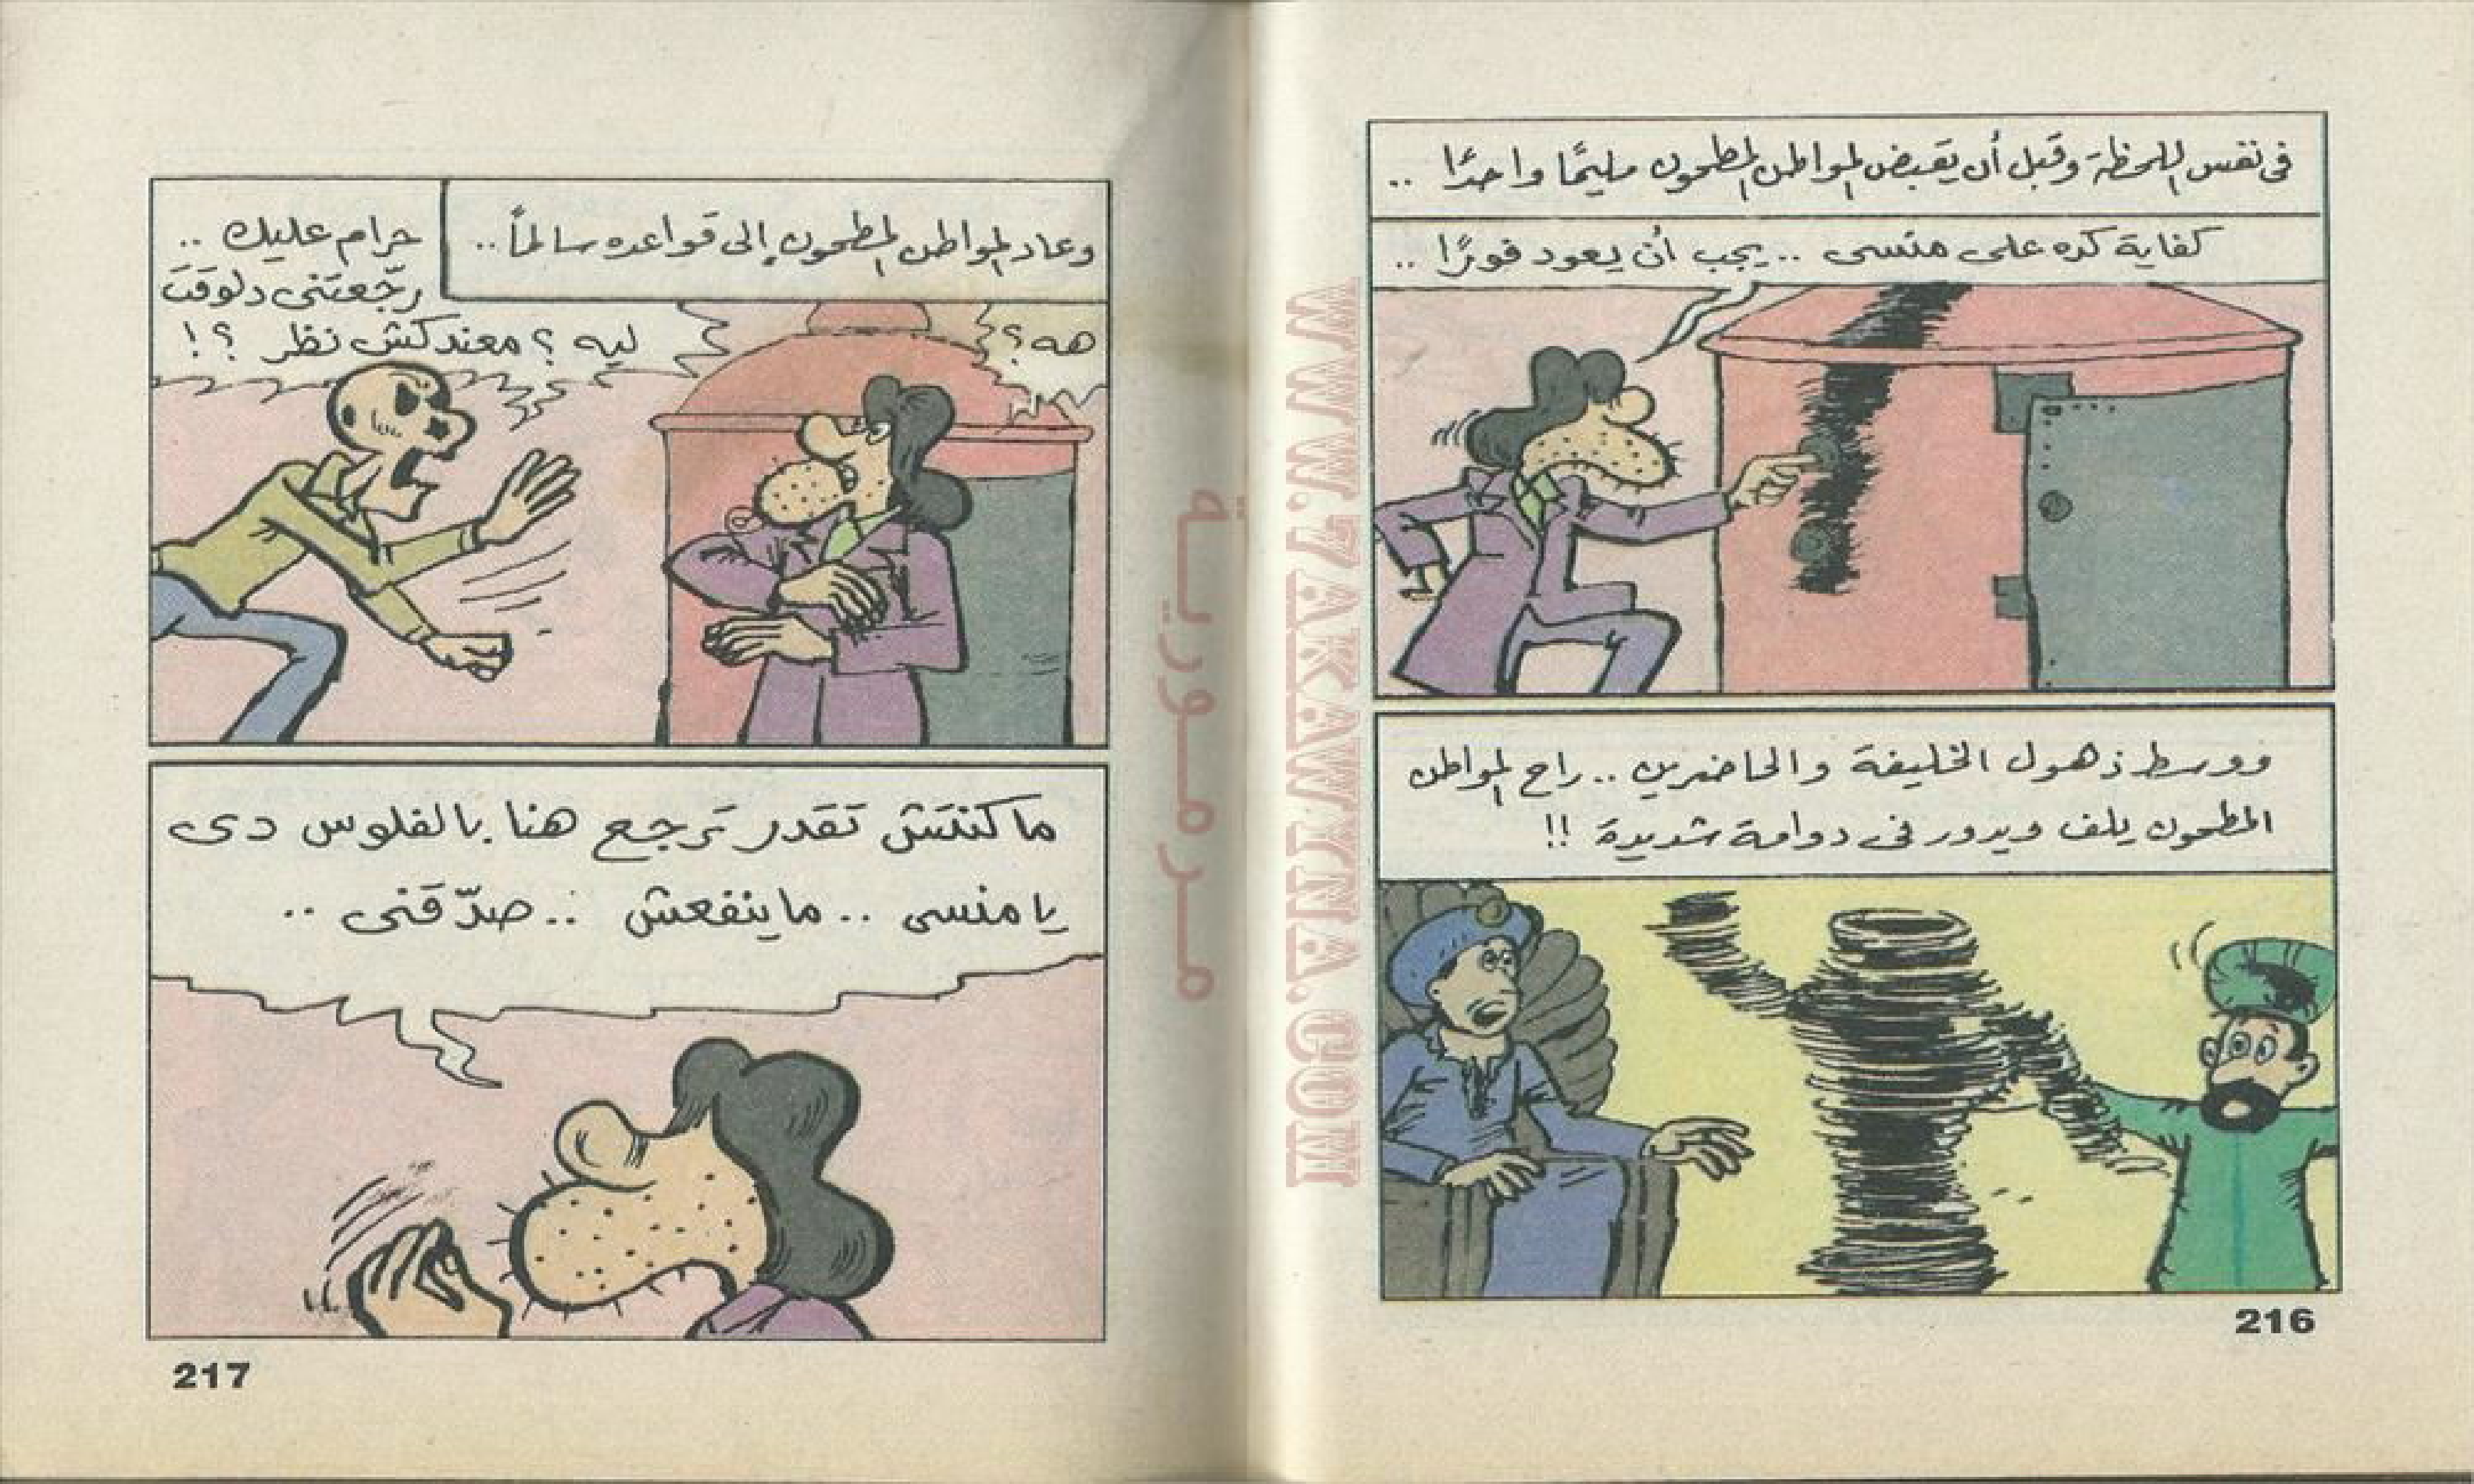 فى نفس اللحظة وقبل أن يقبض المواطن المطحون مليمًا واحدًا ..
كفاية كده على منسى .. يجب أن يعود فورًا ..
ووسط ذهول الخليفة والحاضرين .. راح المواطن
المطحون يلف ويدور فى دوامة شديدة !!
216
وعاد المواطن المطحون إلى قواعده سالماً ..
هه ؟
حرام عليك ..
رجّعتنى دلوقت
ليه ؟ معندكش نظر ؟!
ما كنتش تقدر ترجع هنا بالفلوس دى
يا منسى .. ما ينفعش .. صدّقنى ..
217
مرمورية
WWW.7AKAWINA.COM